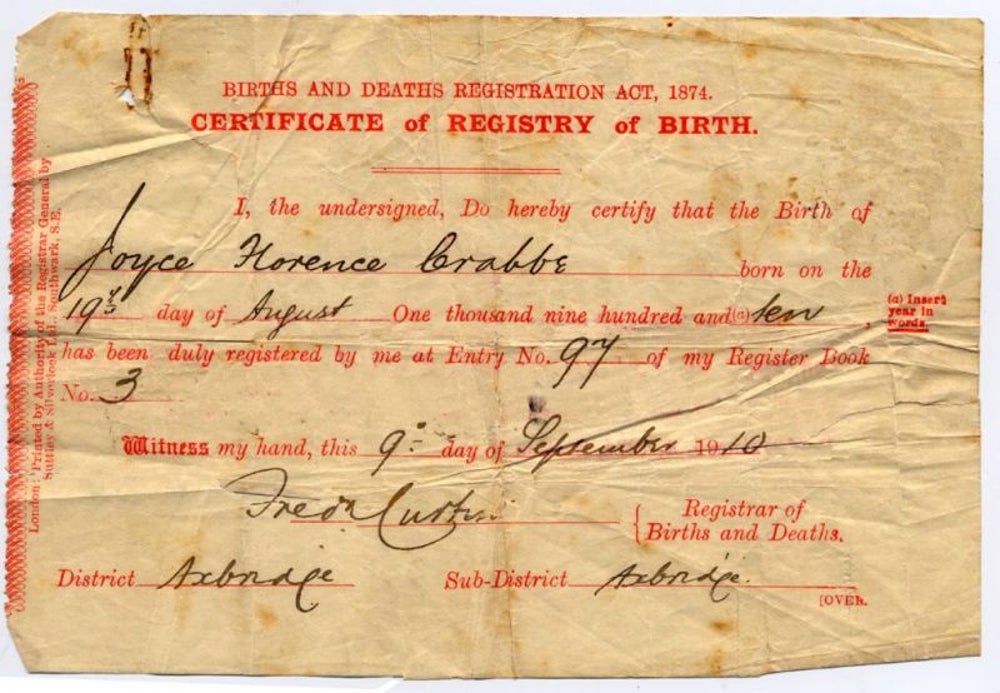 BIRTHS AND DEATHS REGISTRATION ACT, 1874.
CERTIFICATE of REGISTRY of BIRTH.
I, the undersigned, Do hereby certify that the Birth of
Joyce Florence Crabbe born on the
19th day of August One thousand nine hundred and (a) ten,
(a) Insert
year in
words.
has been duly registered by me at Entry No. 97 of my Register Book
No. 3
Witness my hand, this 9th day of September 1910
Fredk Curtis
Registrar of
Births and Deaths.
District Axbridge Sub-District Axbridge.
[OVER.
London: Printed by Authority of the Registrar General by
Suttley & Silverlock Ltd., Southwark, S.E.